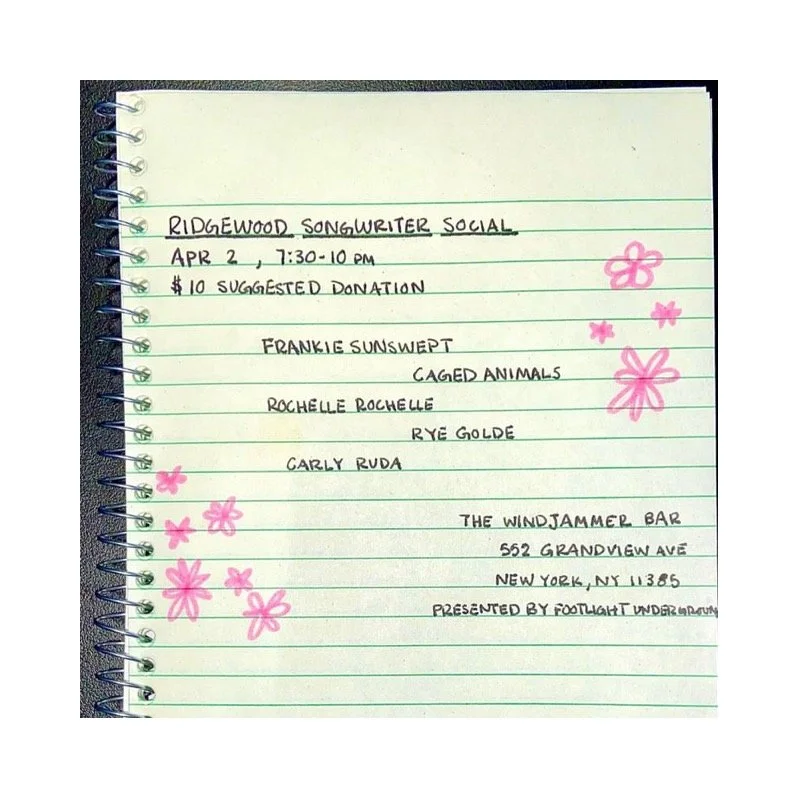 RIDGEWOOD SONGWRITER SOCIAL
APR 2, 7:30-10 PM
$10 SUGGESTED DONATION
FRANKIE SUNSWEPT
CAGED ANIMALS
ROCHELLE ROCHELLE
RYE GOLDE
CARLY RUDA
THE WINDJAMMER BAR
552 GRANDVIEW AVE
NEW YORK, NY 11385
PRESENTED BY FOOTLIGHT UNDERGROUN